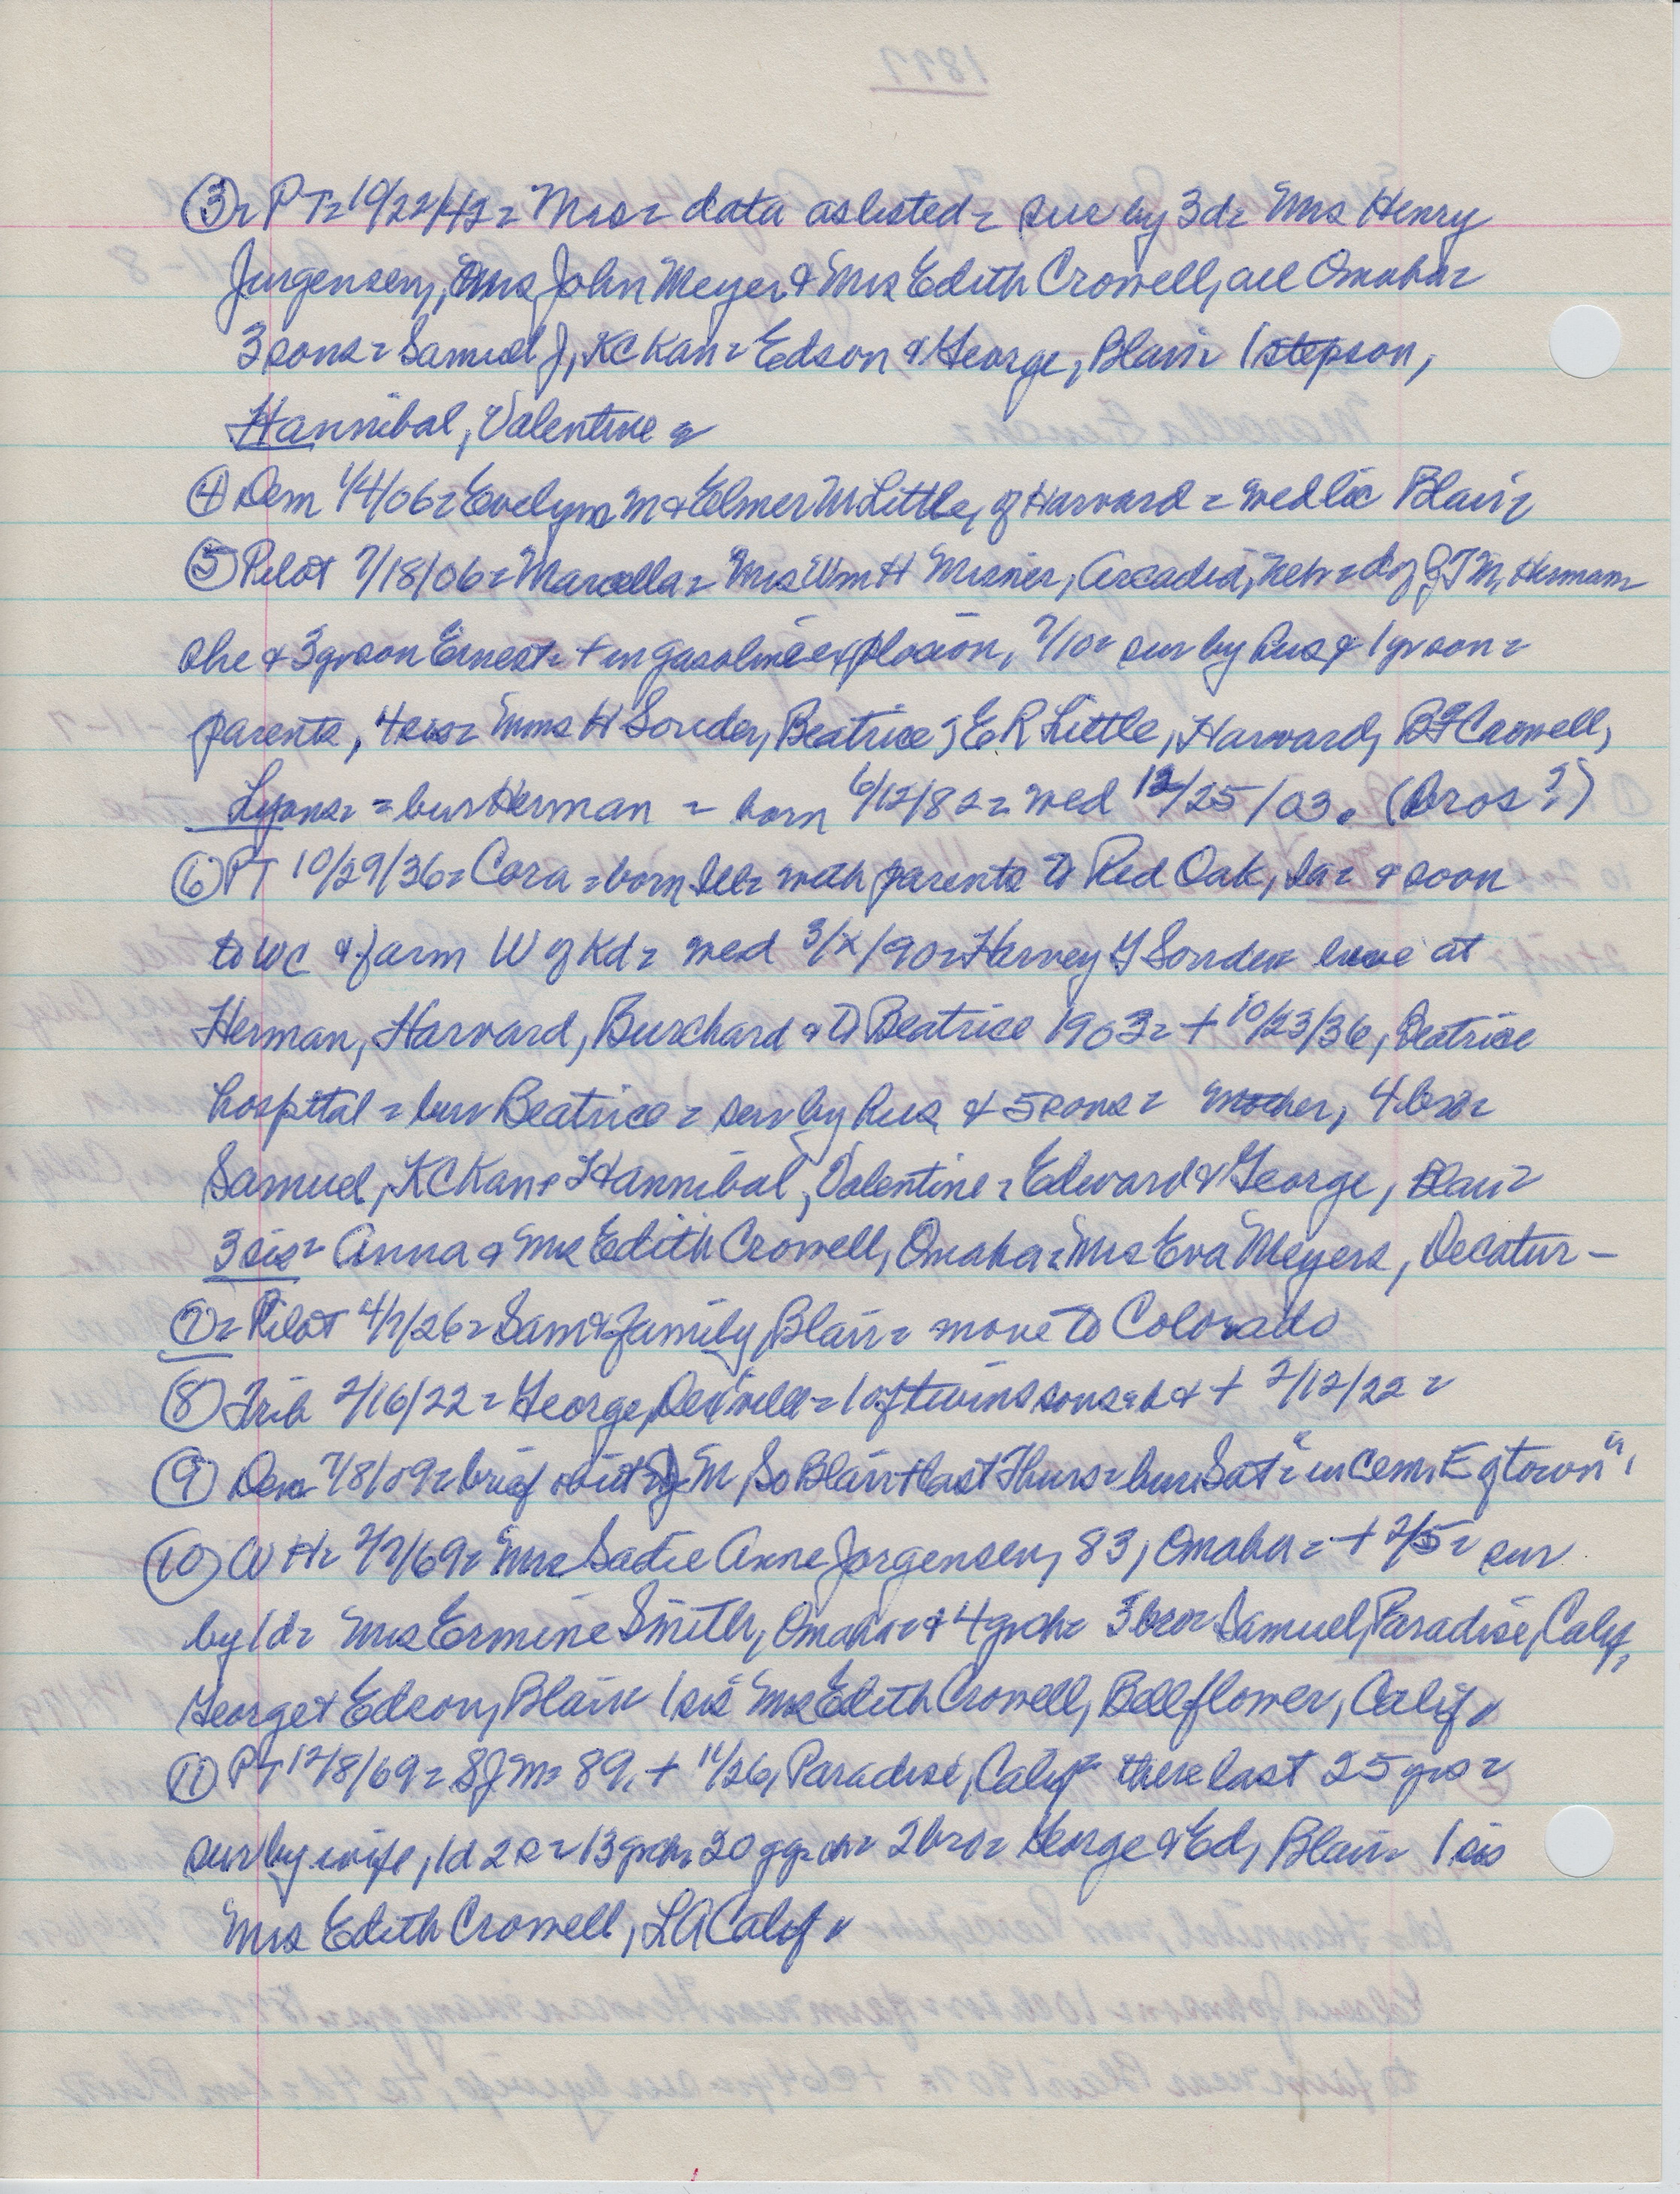 ③ = PT = 10/22/42 = Mrs = data as listed = sur by 3d = Mrs Henry
Jurgensen, Mrs John Meyer & Mrs Edith Crowell, all Omaha =
3 sons = Samuel J, KC Kan = Edson & George, Blair = 1 stepson,
Hannibal, Valentine =
④ Dem 1/4/06 = Evelyn M & Elmer M Little, of Harvard = wed lic Blair =
⑤ Pilot 7/18/06 = Marcella = Mrs Wm H Misner, Arcadia, Nebr = d of J T M, Herman =
she & 3 yr son Ernest = + in gasoline explosion, 7/10 = sur by hus & 1 yr son =
parents, 4 sis = Mmes H Souder, Beatrice; E R Little, Harvard, B F Crowell,
Lyons = = bur Herman = born 6/12/82 = wed 12/25/03. (bros?)
⑥ PT 10/29/36 = Cora = born Ill = with parents to Red Oak, Ia = & soon
to WC & farm W of Kd = wed 3/x/90 = Harvey Y Souder = live at
Herman, Harvard, Burchard & to Beatrice 1903 = + 10/23/36, Beatrice
hospital = bur Beatrice = sur by hus & 5 sons = mother, 4 bro =
Samuel, KC Kan = Hannibal, Valentine = Edward & George, Blair =
3 sis = Anna & Mrs Edith Crowell, Omaha = Mrs Eva Meyers, Decatur –
⑦ = Pilot 4/7/26 = Sam & family, Blair = move to Colorado
⑧ Trib 2/16/22 = George, = 1 of twins sons = b & + 2/12/22 =
⑨ Dem 7/8/09 = brief obit = J M, So Blair + last Thurs = bur Sat = "in cem E of town".
⑩ W H = 2/7/69 = Mrs Sadie Anne Jorgensen, 83, Omaha = + 2/5 = sur
by 1d = Mrs Ermine Smith, Omaha = & 4 grch = 3 bro = Samuel, Paradise, Calif,
George & Edson, Blair = 1 sis = Mrs Edith Crowell, Bellflower, Calif =
⑪ PT 12/8/69 = S J M = 89, + 11/26, Paradise, Calif = there last 25 yrs =
sur by wife, 1d 2s = 13 grch, 20 ggrch = 2 bro = George & Ed, Blair = 1 sis
Mrs Edith Crowell, LA Calif =